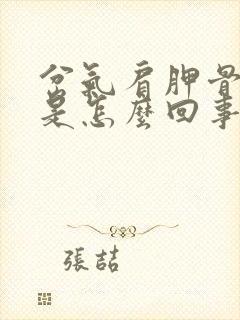 岔氣肩胛骨
是怎麼回事
張喆